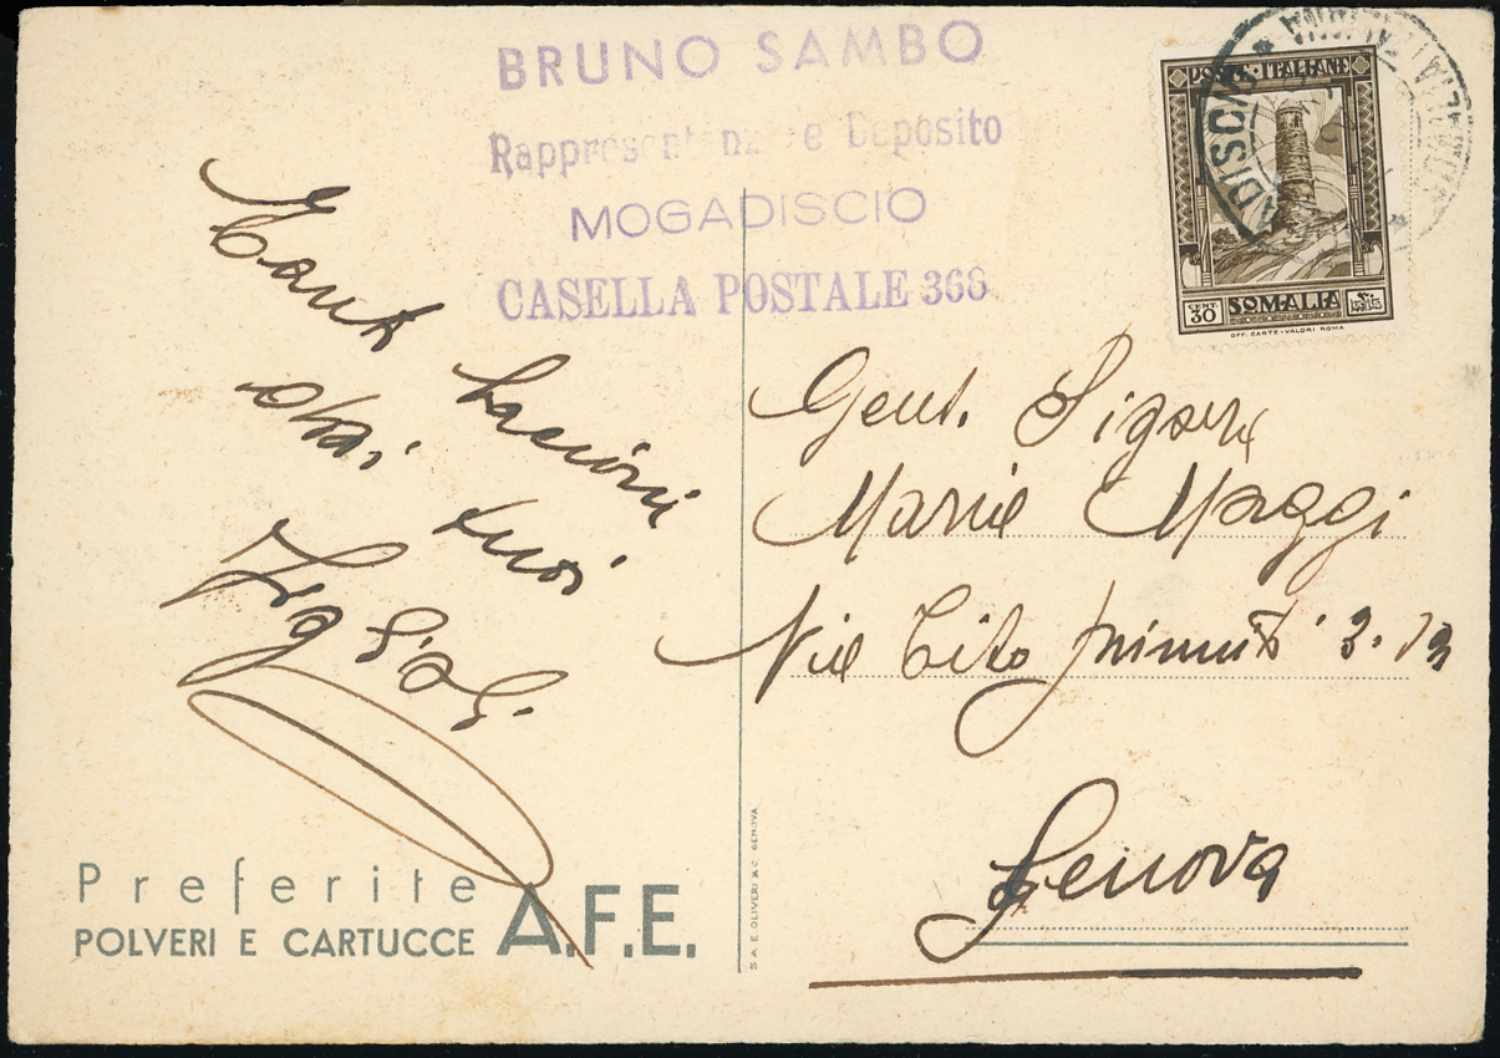 BRUNO SAMBO
Rappresentanze e Deposito
MOGADISCIO
CASELLA POSTALE 368
POSTE·ITALIANE
CENT 30
SOMALIA
OFF. CARTE-VALORI ROMA
ADISCIO
SOMALIA ITALIANA
Tanti bacioni
dai tuoi
Gent. Signora
Maria Maggi
Via Tito
Genova
Preferite
POLVERI E CARTUCCE A.F.E.
S.A.E. OLIVERI & C. GENOVA